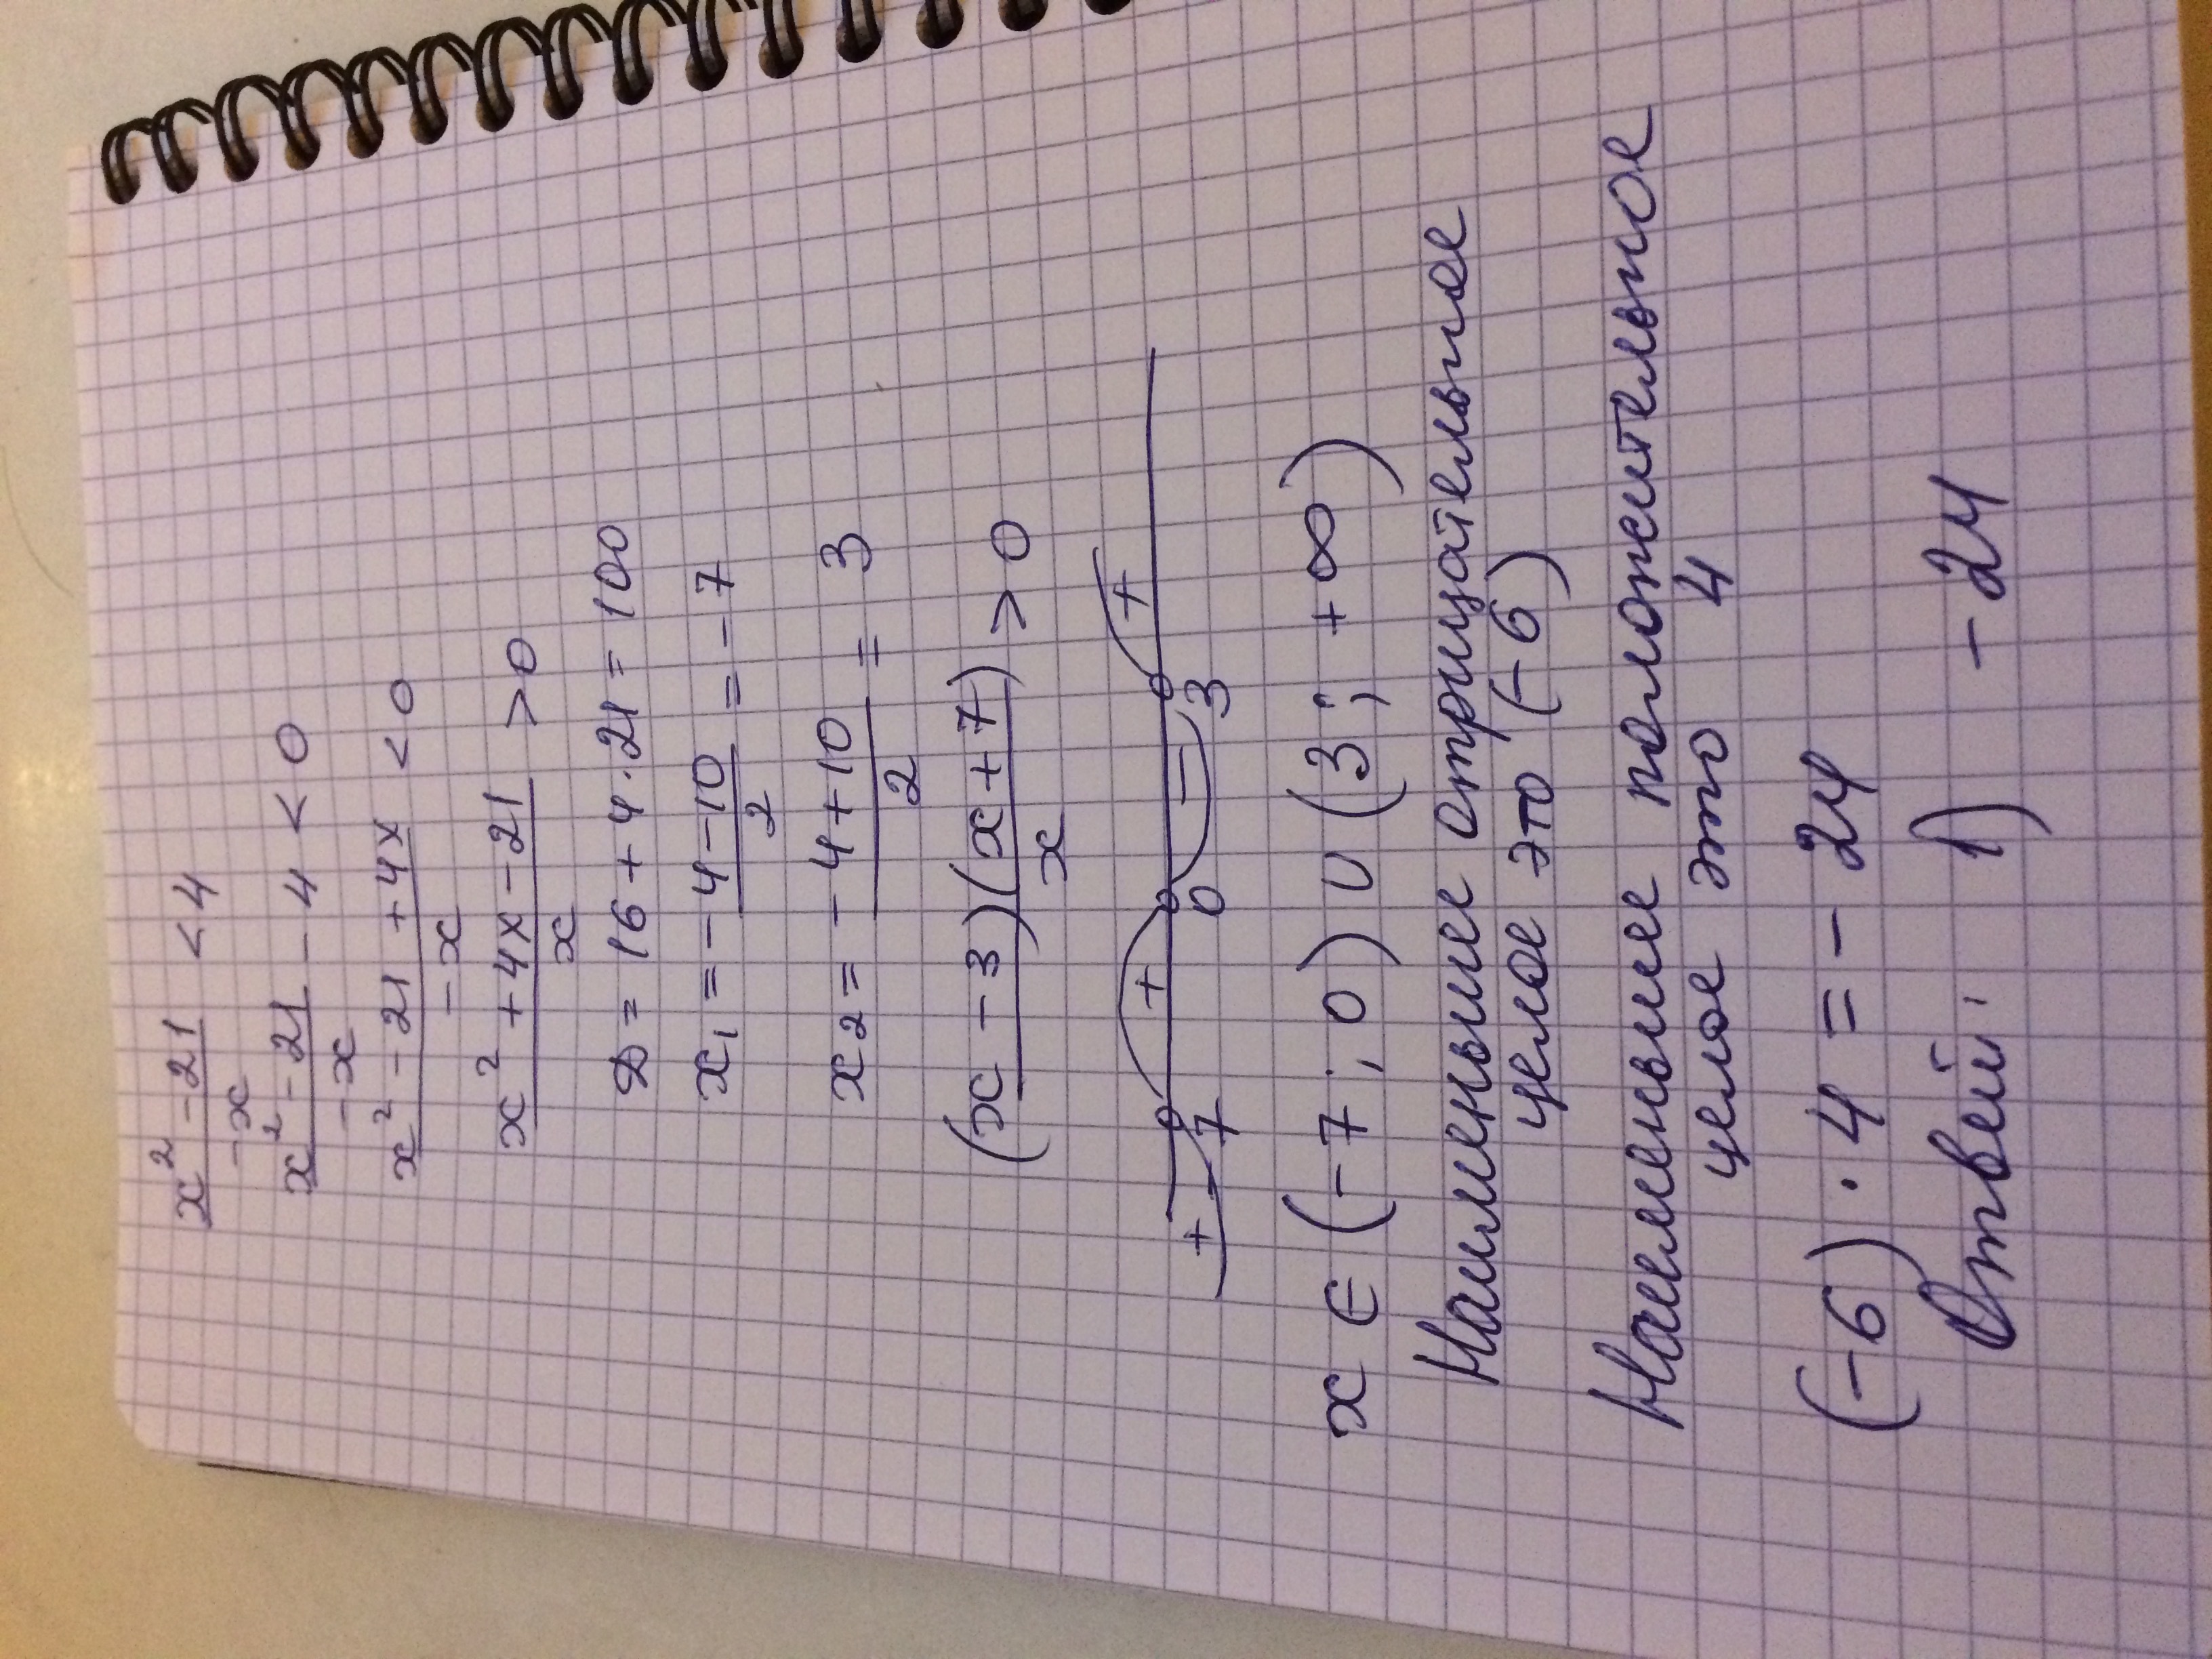 x² - 21 / -x < 4
x² - 21 / -x - 4 < 0
x² - 21 + 4x / -x < 0
x² + 4x - 21 / x > 0
D = 16 + 4 · 21 = 100
x₁ = -4 - 10 / 2 = -7
x₂ = -4 + 10 / 2 = 3
(x - 3)(x + 7) / x > 0
+ + - +
-7 0 3
x ∈ (-7; 0) ∪ (3; +∞)
Наименьшее отрицательное
целое это (-6)
Наименьшее положительное
целое это 4
(-6) · 4 = -24
Ответ: 1) -24